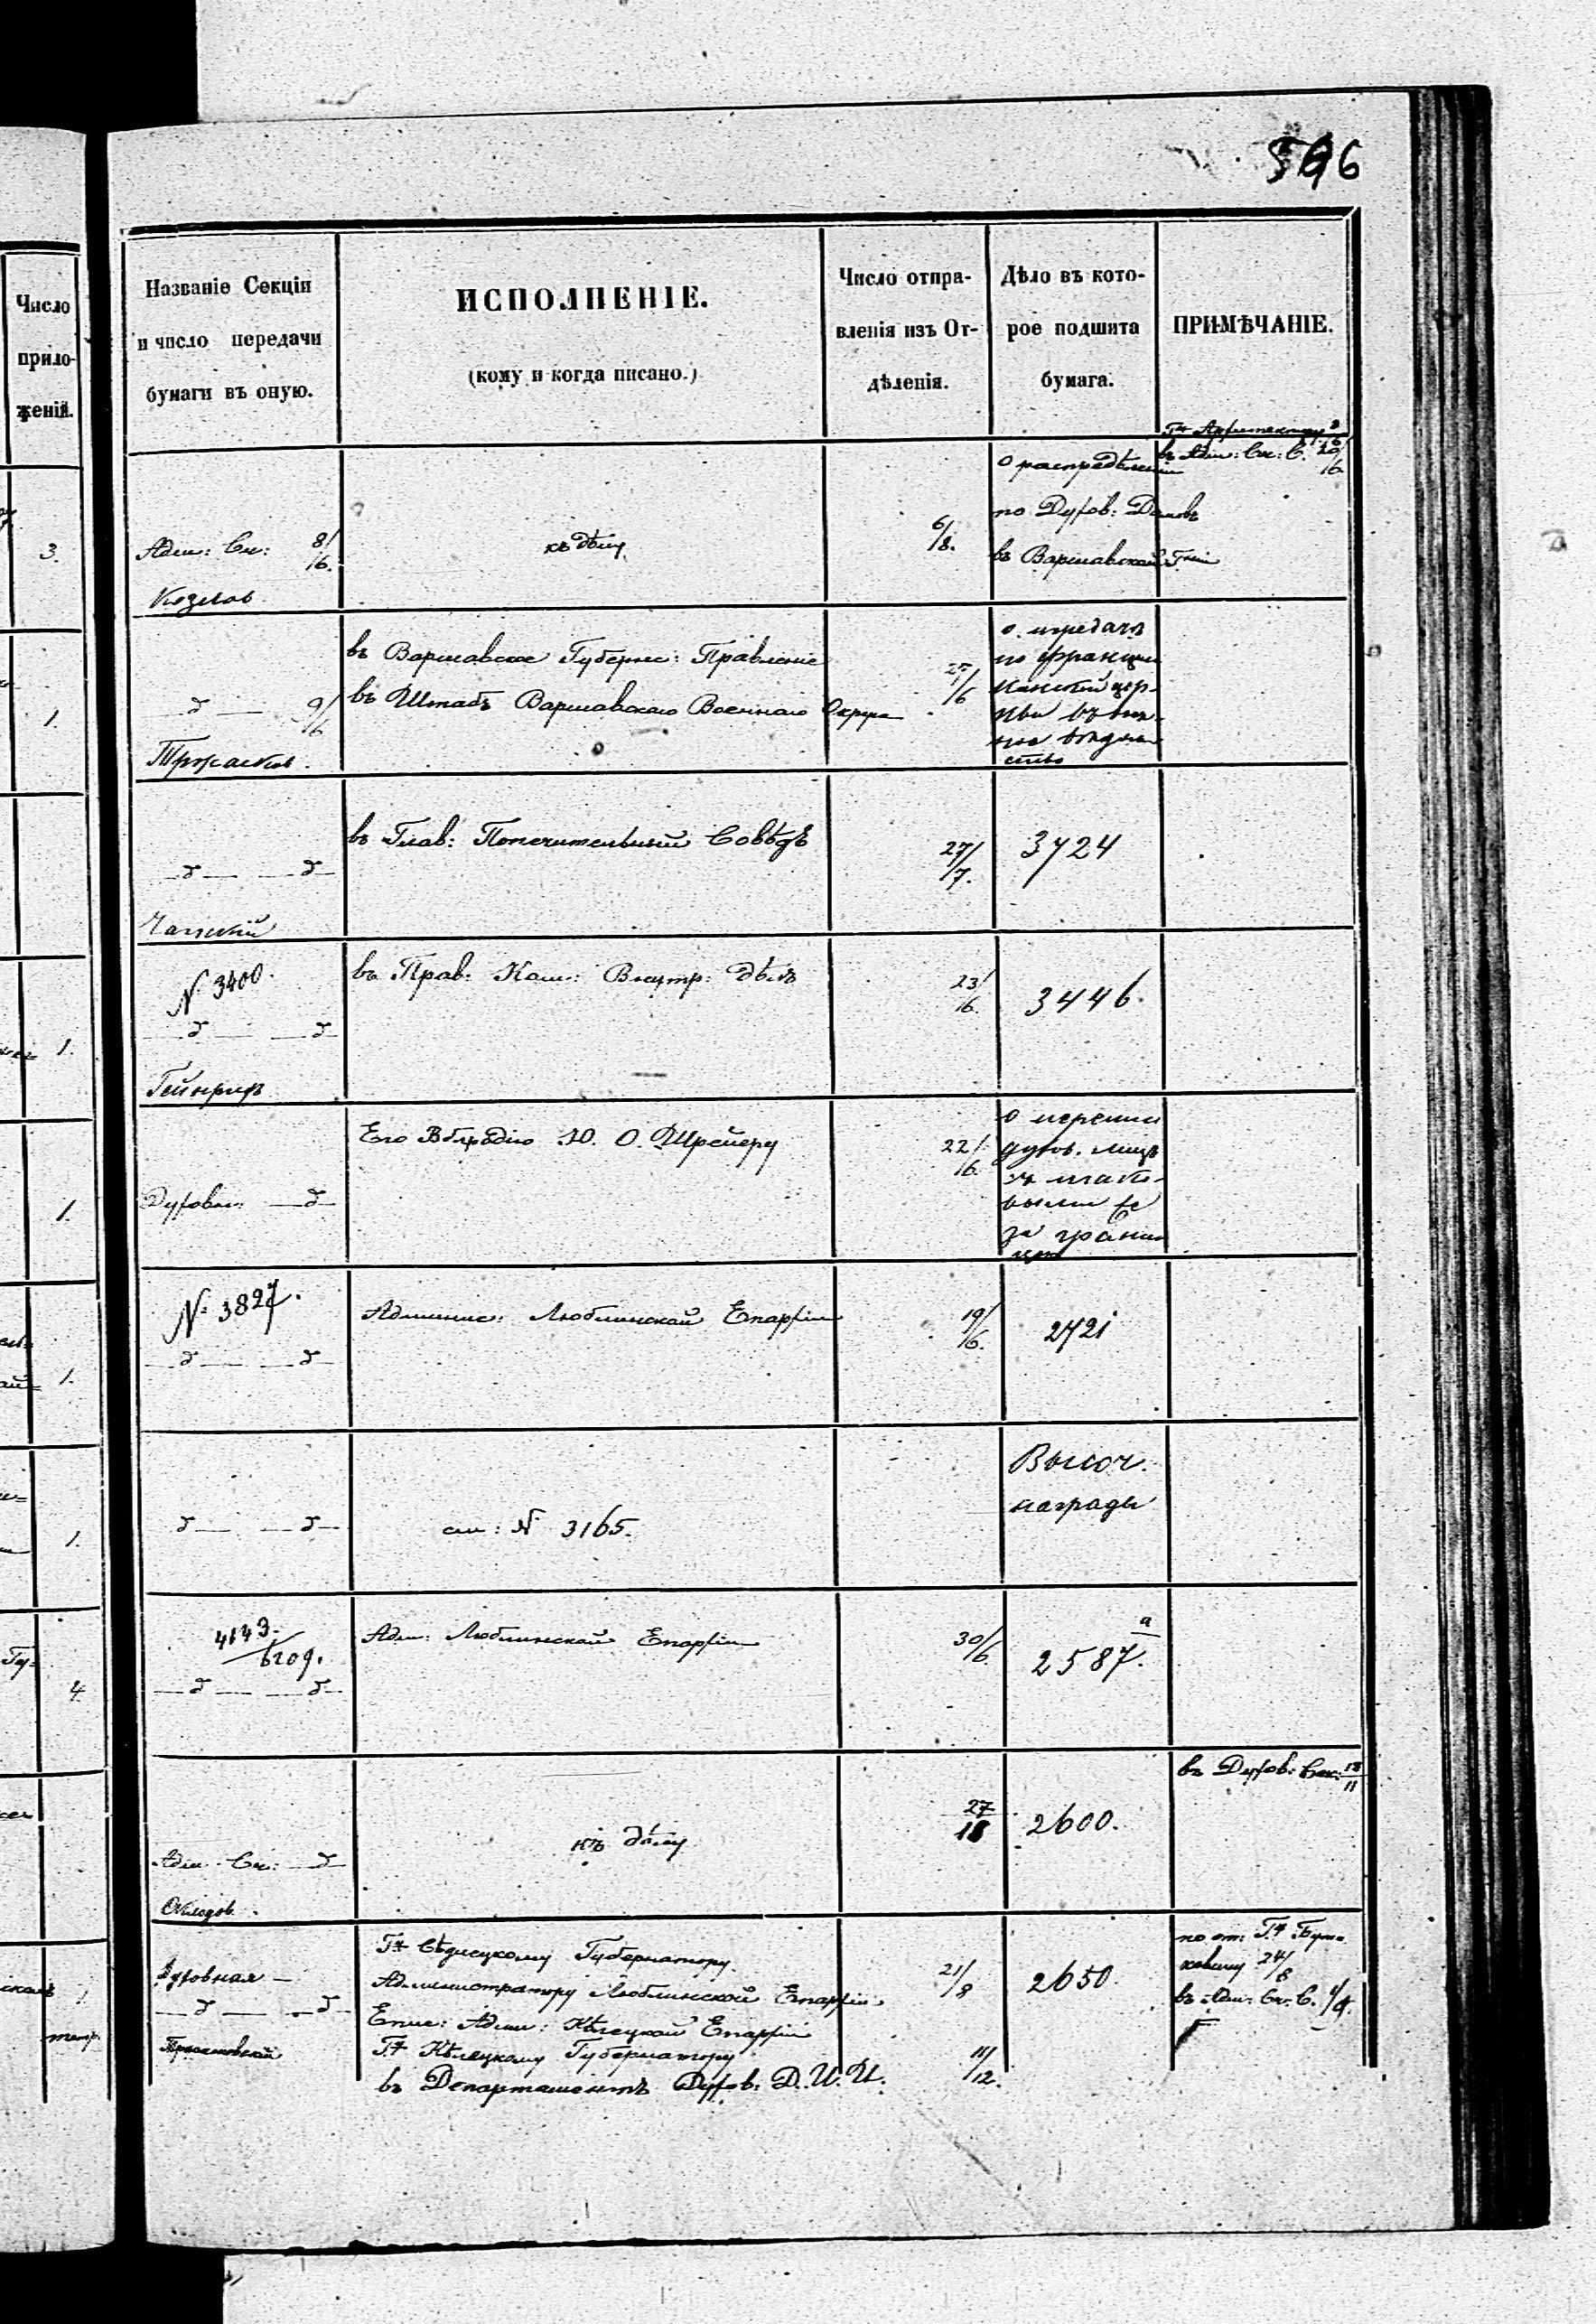 596
Число
прило-
женій.
Названіе Секціи
и число передачи
бумаги въ оную.
ИСПОЛНЕНІЕ.
(кому и когда писано.)
Число отпра-
вленія изъ От-
дѣленія.
Дѣло въ кото-
рое подшита
бумага.
ПРИМѢЧАНІЕ.
3.
Адм: Ск: 8/16.
Козлов
къ дѣлу
6/8.
о распредѣленіи
по Духов: Домовъ
въ Варшавской Гніи
Гну Архитектору
въ Адм: Ск: С. 20/6
1.
9/6
въ Варшавское Губернс: Правленіе
въ Штабъ Варшавскаго Военнаго Округа
27/6
о передачѣ
по Францис
канской цер-
кви въ воен-
ное вѣдом
ство
въ Глав: Попечительный Совѣтъ
27/7.
3724
1.
N. 3400.
Гейнрихъ
въ Прав. Ком: Внутр: Дѣлъ
23/6.
3446.
1.
Духовн:
Его Вблгродію Ю. О. Шрейеру
22/6.
духов. лицъ
за грани
цею
1.
N. 3827.
Админис: Люблинской Епархіи
19/6.
2721
1.
см: N 3165.
Высоч.
награды
4.
4143.
Адм: Люблинской Епархіи
30/6.
2587. а
Адм. Ск:
къ дѣлу
27
18
2600.
въ Духов: Сек: 18/11
1.
Духовная
Гну Сѣдлецкому Губернатору
Администратору Люблинской Епархіи
Епис: Адми: Кѣлецкой Епархіи
Гну Кѣлецкому Губернатору
въ Департаментъ Духов. Д. И. И.
21/8
11/12.
2650.
по от: Гну Бут-
ковичу 24/8
въ Адм: Ск: С. 1/9.